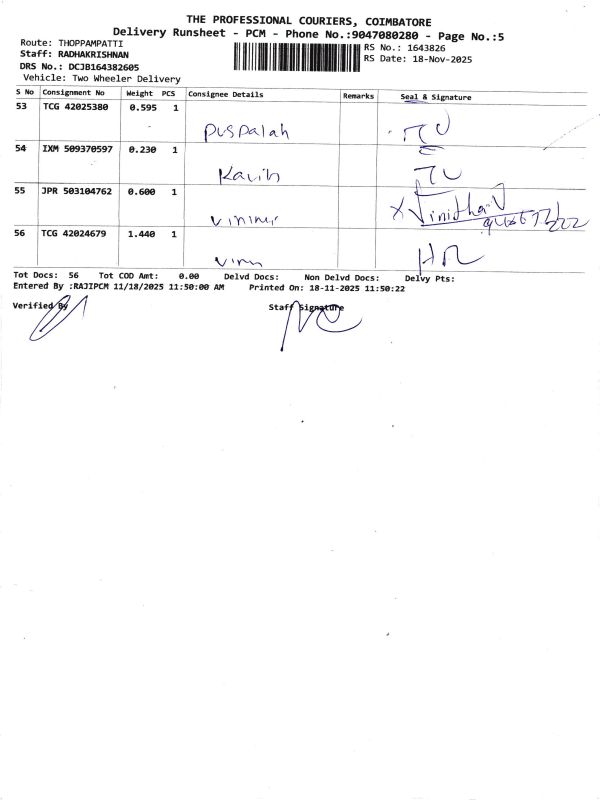 THE PROFESSIONAL COURIERS, COIMBATORE
Delivery Runsheet - PCM - Phone No.:9047080280 - Page No.:5
Route: THOPPAMPATTI
Staff: RADHAKRISHNAN
DRS No.: DCJB164382605
Vehicle: Two Wheeler Delivery
RS No.: 1643826
RS Date: 18-Nov-2025
S No Consignment No Weight PCS Consignee Details Remarks Seal & Signature
53 TCG 42025380 0.595 1
Puspalah
54 IXM 509370597 0.230 1
Kavin
55 JPR 503104762 0.600 1
56 TCG 42024679 1.440 1
Tot Docs: 56 Tot COD Amt: 0.00 Delvd Docs: Non Delvd Docs: Delvy Pts:
Entered By :RAJIPCM 11/18/2025 11:50:00 AM Printed On: 18-11-2025 11:50:22
Verified By Staff Signature